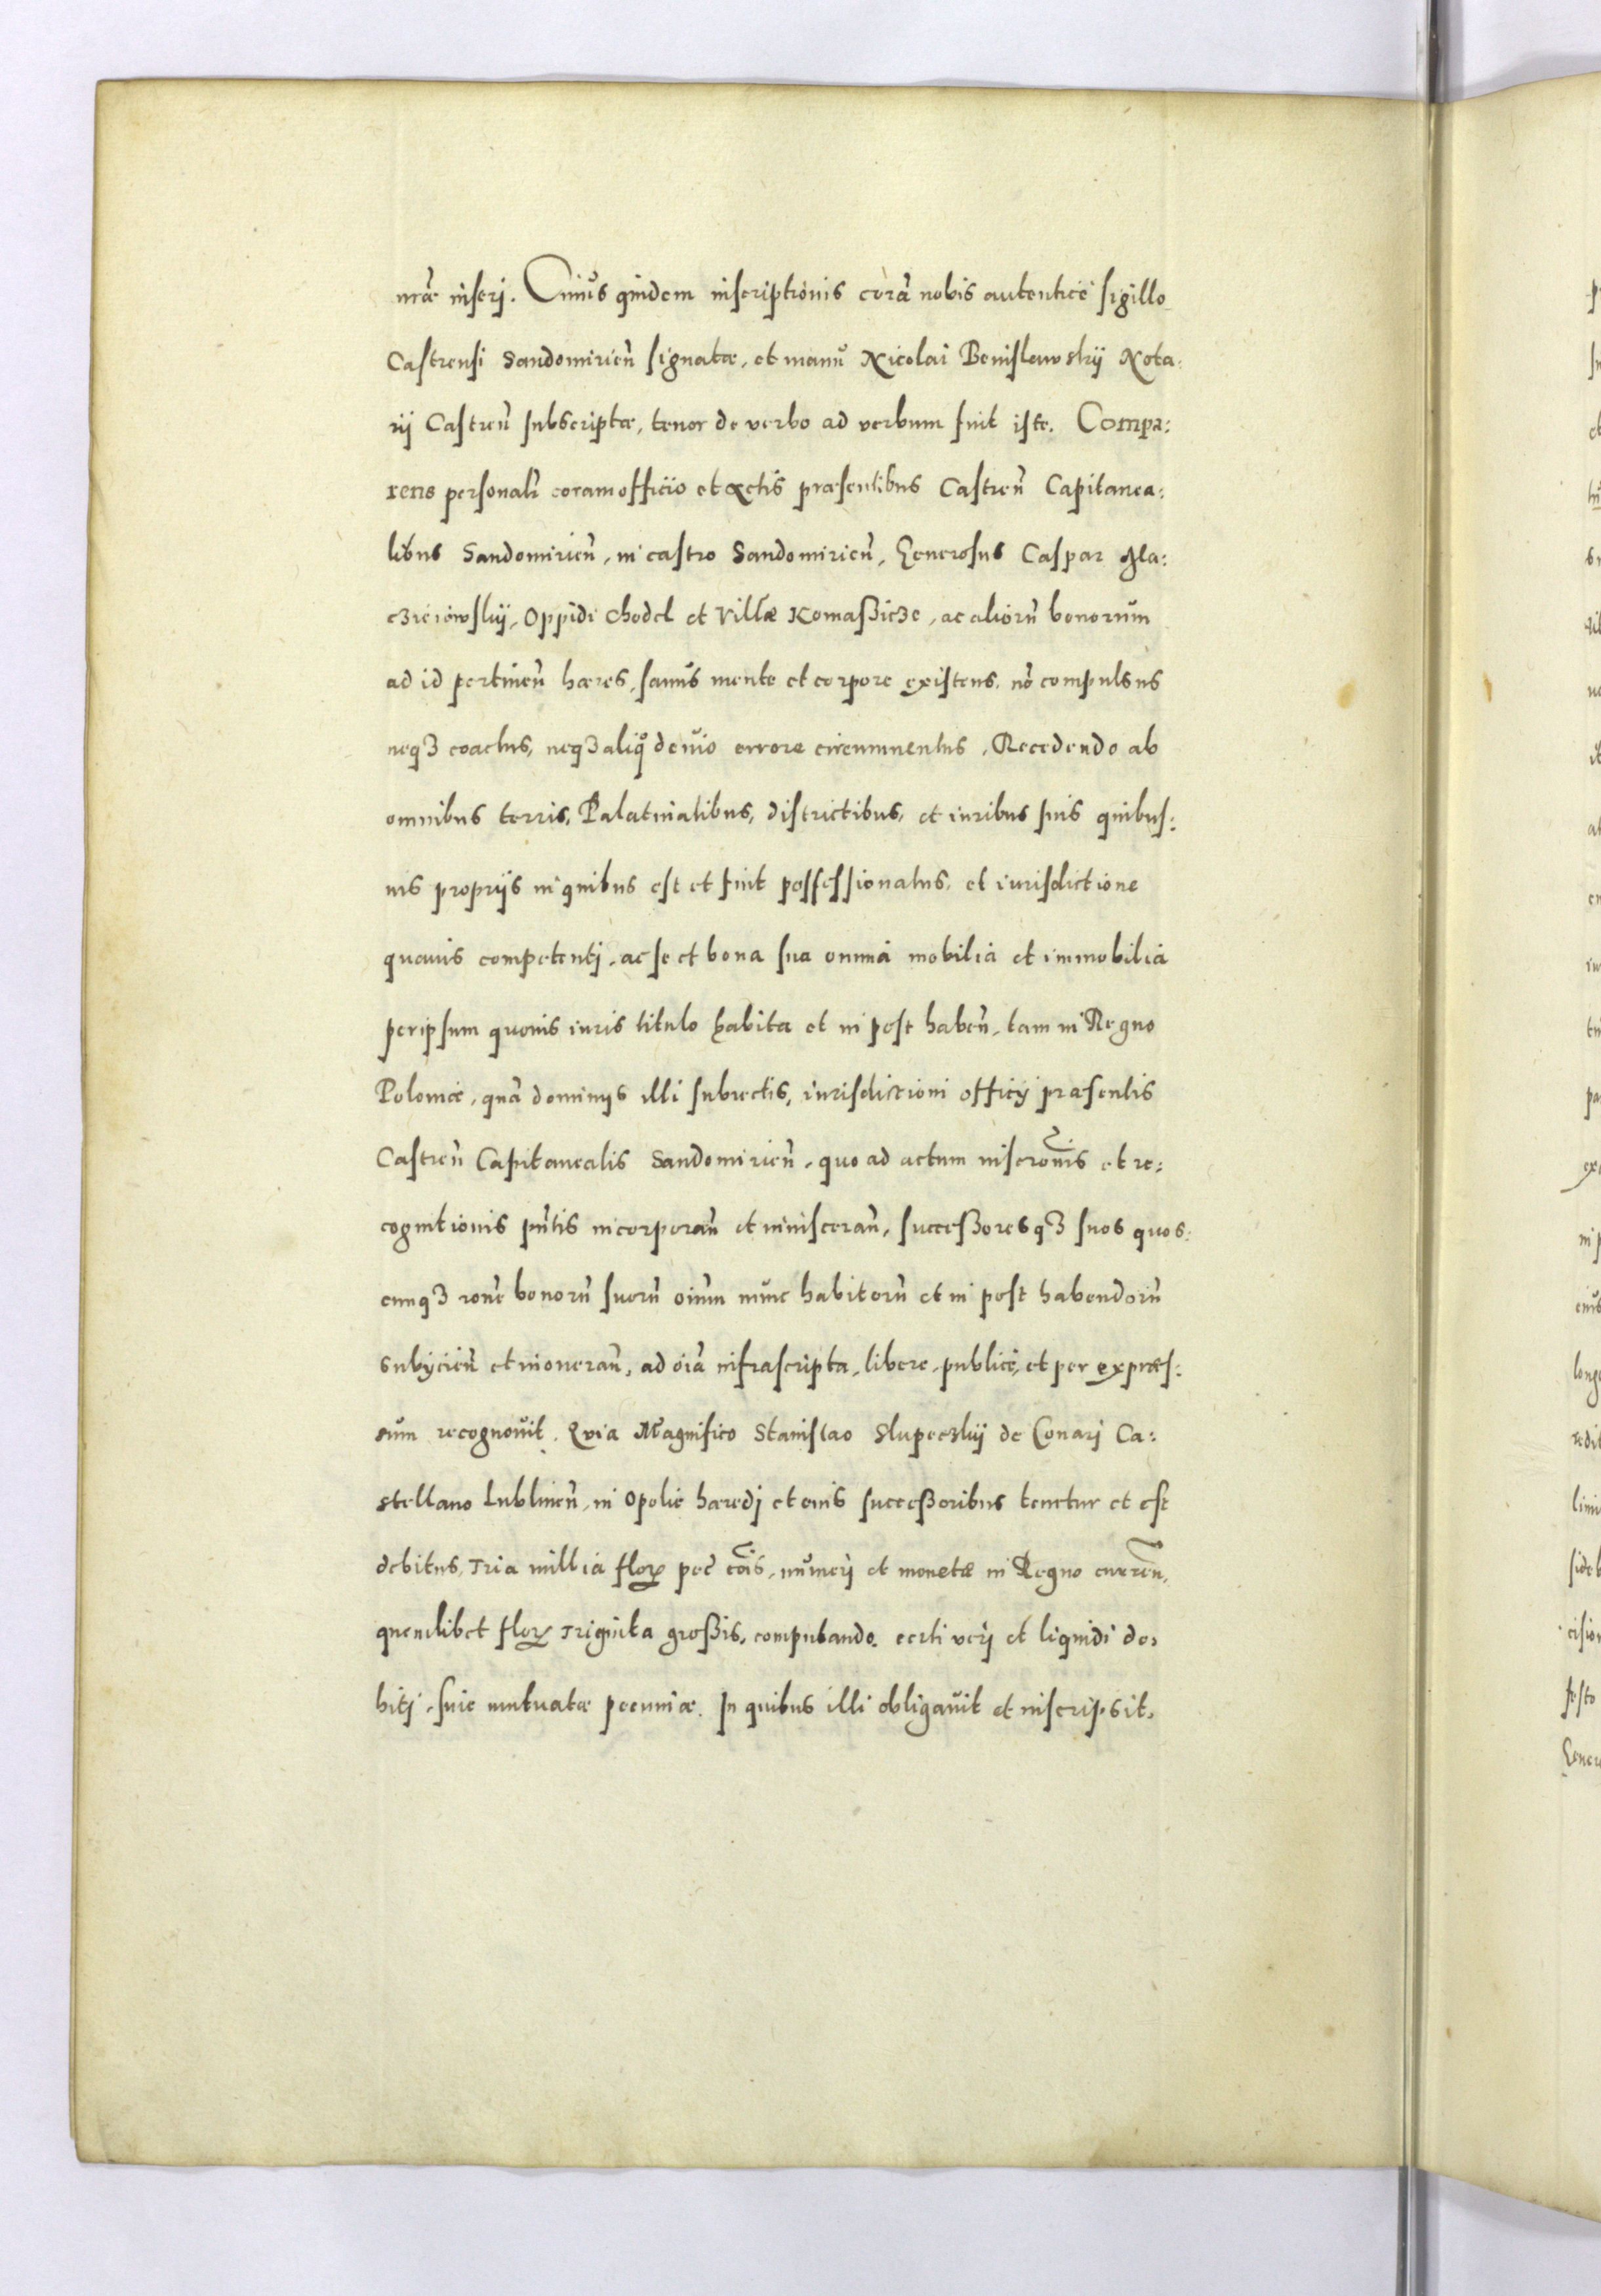 nr̃æ inseri. Cuius quidem inscriptionis corã nobis autenticè sigillo
Castrensi Sandomirieñ signatæ, et manu Nicolai Benislawskij Nota:
rij Castreñ subscriptæ, tenor de verbo ad verbum fuit iste. Compa:
rens personalr̃ coram officio et actis præsentibus Castreñ Capitanea:
libus Sandomirieñ, in castro Sandomirieñ, Generosus Caspar
Oppidi Chodel et Villæ Komaßicze, ac aliorũ bonorum
ad id pertineñ hæres, sanus mente et corpore existens, nõ compulsus
neqз coactus, neqз aliqͦ deuio errore circumuentus, Recedendo ab
omnibus terris, Palatinatibus, districtibus, et iuribus suis quibus:
uis proprijs in quibus est et fuit possessionatus, et iurisdictione
quauis competentj, ac se et bona sua omnia mobilia et immobilia
per ipsum quouis iuris titulo habita et in post habeñ, tam in Regno
Poloniæ, quã dominijs illi subiectis, iurisdictioni officij præsentis
Castreñ Capitanealis Sandomirieñ, quo ad actum inscrõnis et re:
cognitionis pñtis incorporañ et inuisceran̄, successoresqз suos quos:
cunqз rone bonorũ suorũ oim̃ nunc habitorũ et in post habendorũ
subijcieñ et inonerañ, ad oiã infrascripta, libere, publicè, et per expres:
sum recognouit. Quia Magnifico Stanislao Slupeczkij de Conarj Ca:
stellano Lublineñ, in Opolie hæredj et eius succeßoribus tenetur et est
debitus, Tria millia floꝝ pec̃ cõis, numeri et monetæ in Regno curreñ,
quemlibet floꝝ Triginta großis, computando. certi verj et liquidi de:
bitj, siue mutuatæ pecuniæ. In quibus illi obligauit et inscripsit,